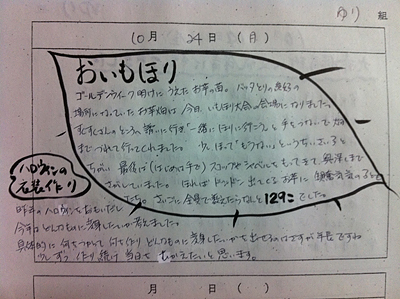 ゆり 組
10月 24日 (月)
おいもほり
ゴールデンウィーク明けにうえたお芋の苗。バッタとりの最高の
場所になっていたお芋畑は今日いもほり大会の会場になりました。
すみれさんのところへ誘いに行き"一緒にほりに行こう"と手をつないで畑
までつれて行ってくれました。少しほって"もうない"というちいさい子と
ちがい 最後は スコップやシャベルをもってきて 奥深くまで
さがしていました。ほればドンドン出てくるお芋に
たち。さいごに全員で数えたらなんと129こでした。
ハロウィンの
衣装作り
昨年のハロウィンをおもいだし
今年はどんなものに変身したいか考えました。
具体的に何をつかって何を作りどんなものに変身したいかを出せるのはさすが年長ですね
少しずつ作り続け当日をむかえたいと思います。
月 日 ( )